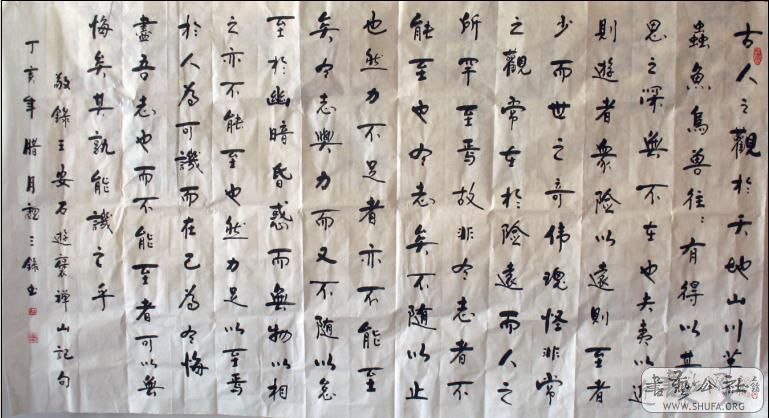 古人之觀於天地山川草
蟲魚鳥兽往:有得以其
思之深無不在也夫夷以近
則遊者衆險以遠則至者
少而世之奇偉瑰怪非常
之觀常在於險遠而人之
所罕至焉故非有志者不
能至也有志矣不隨以止
也然力不足者亦不能至
矣有志與力而又不隨以怠
至於幽暗昏惑而無物以相
之亦不能至也然力足以至焉
於人為可譏而在己為有悔
盡吾志也而不能至者可以無
悔矣其孰能譏之乎
敬錄王安石遊褒禅山記句
丁亥年腊月三錄書
書藝公社
WWW.SHUFA.ORG